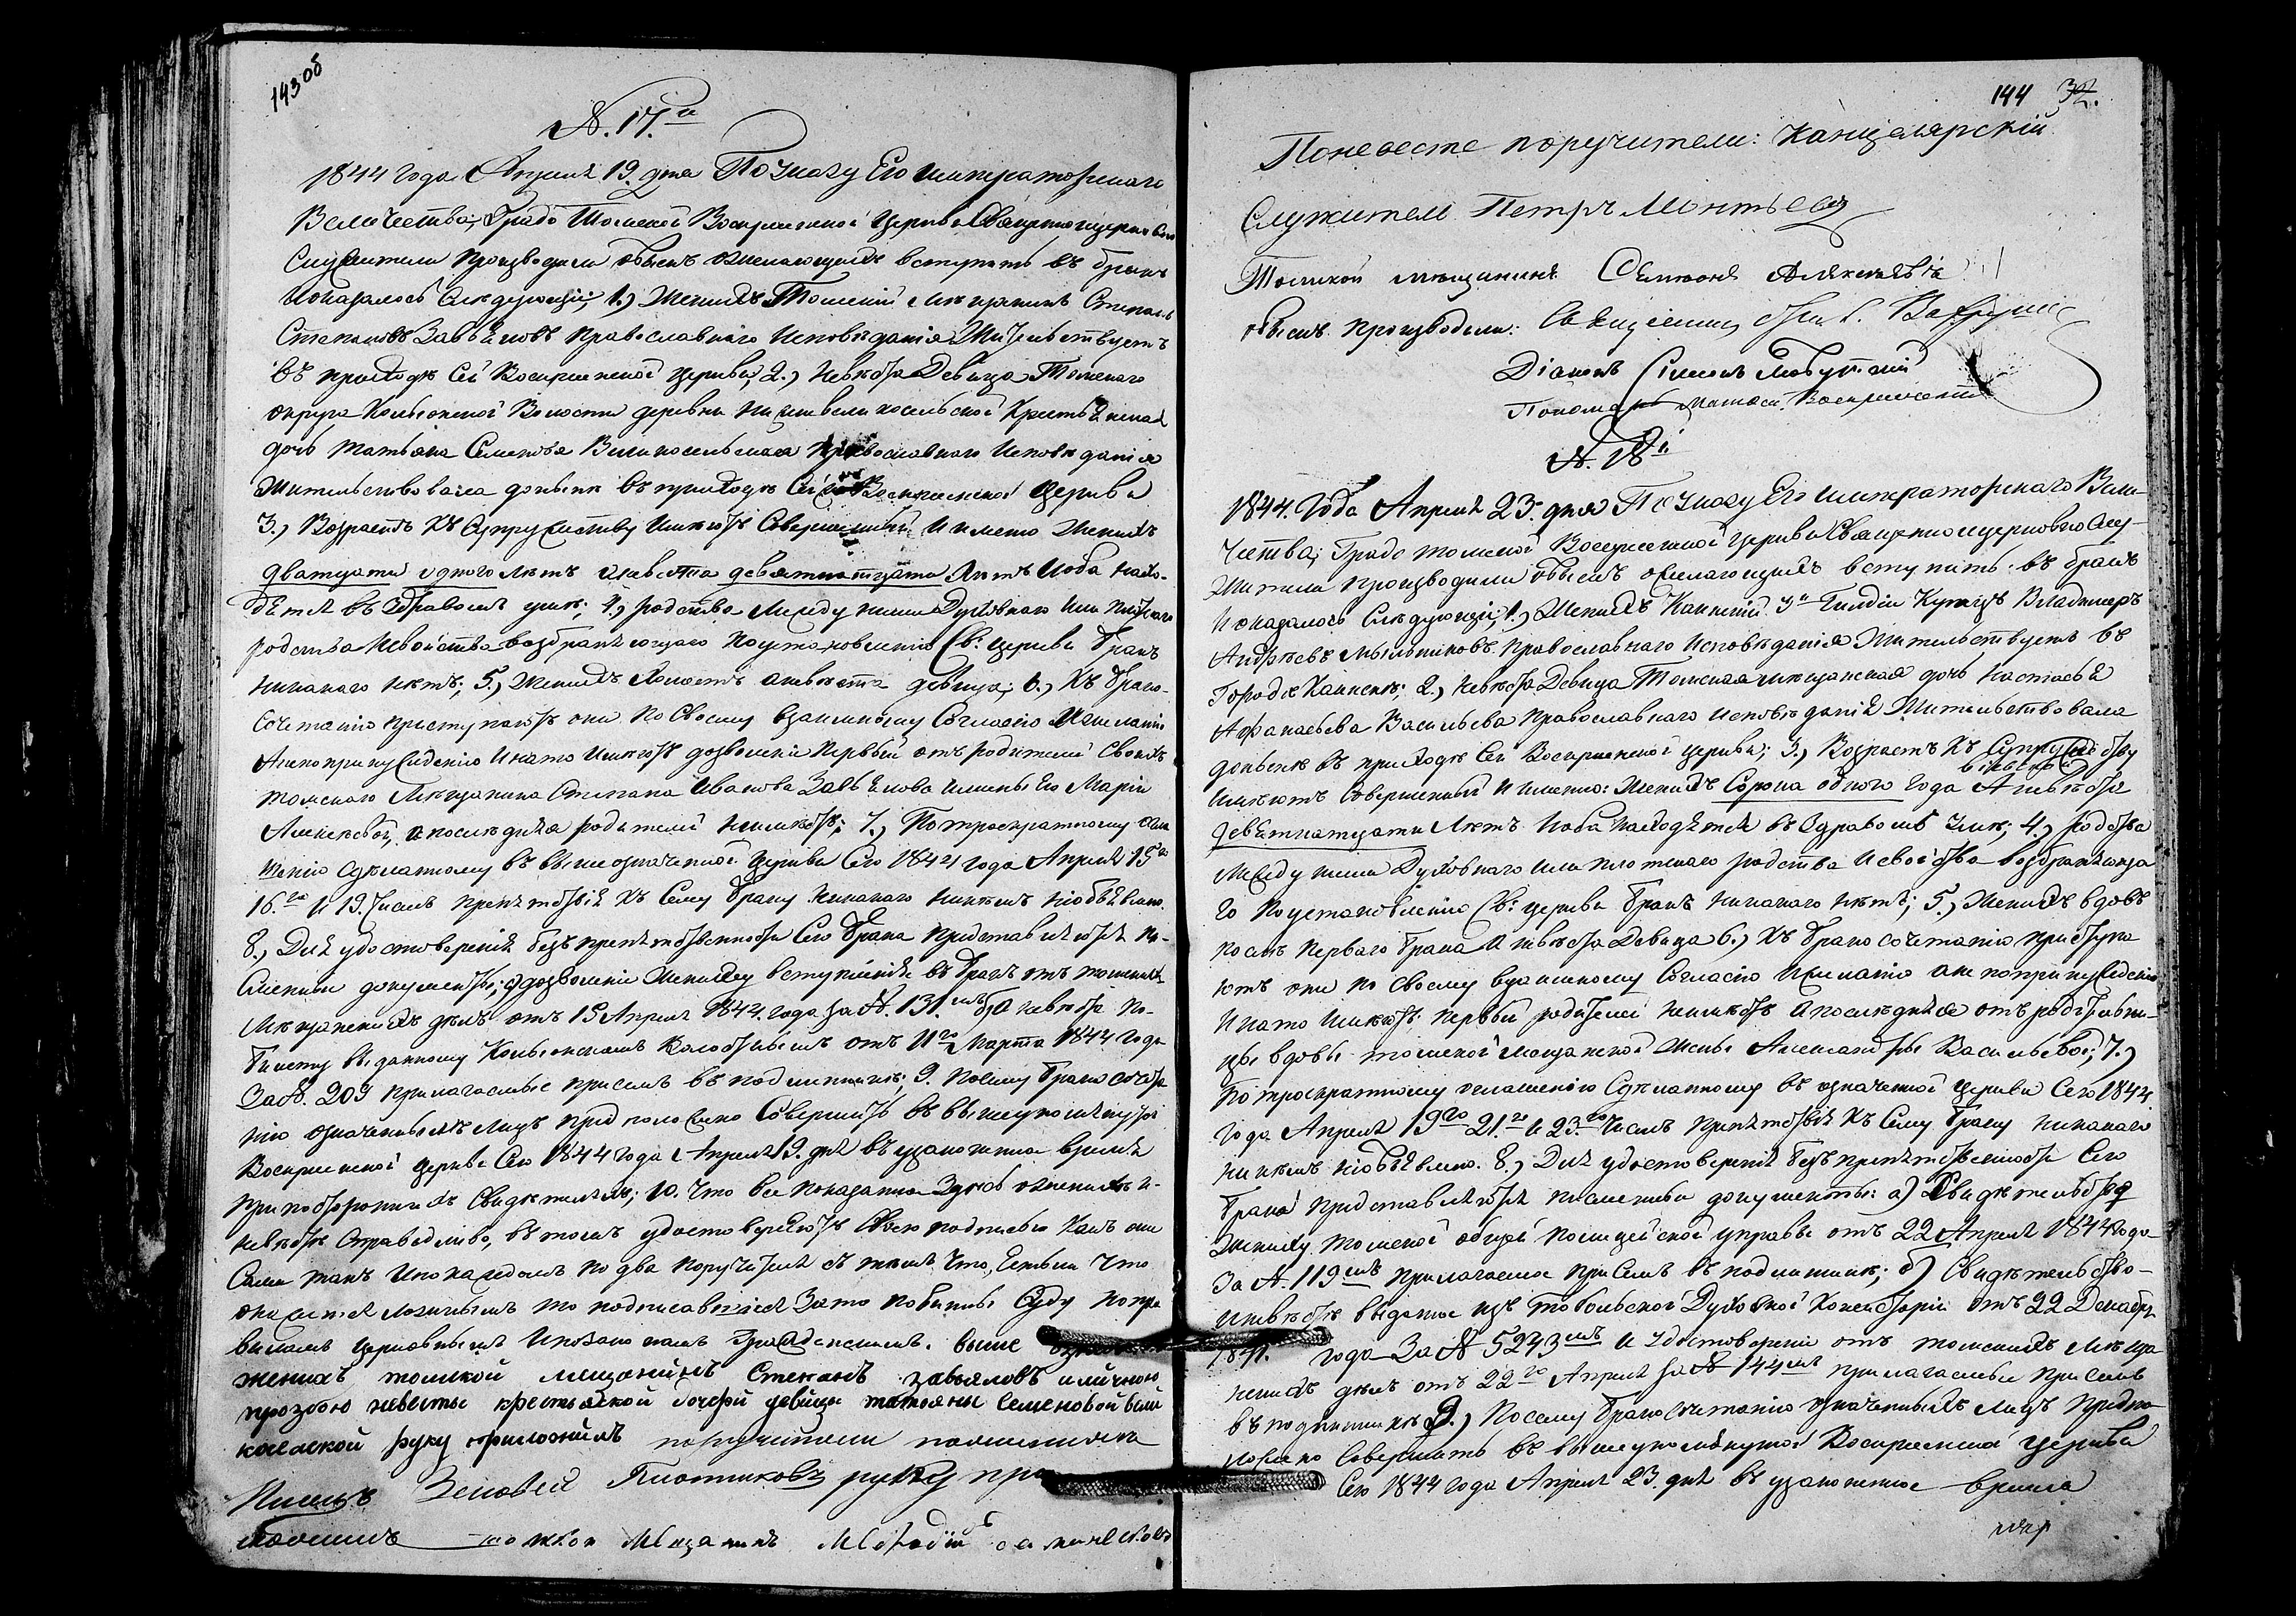 143 об
N. 17.й
1844 года Апреля 19. дня По Указу Его Императорскаго
Величества, Градо Томской Воскресенской Церкви Священноцерковно
Служители производили обыскъ о желающихъ вступить въ бракъ
и оказалось следующее; 1.) Женихъ Томский Мещанинъ Степанъ
Степановъ Завьяловъ православнаго исповѣданія Жительствуетъ
въ приходѣ Сей Воскресенской церкви, 2.) Невѣста Девица Томскаго
округа Волости деревни Крестьянская
дочь Татьяна Семенова православнаго Исповѣданія
Жительствовала доныне въ приходѣ Сей Воскресенской Церкви
3.) Возрастъ къ Супружеству имѣютъ Совершенный и имено Женихъ
дватцати одного лѣтъ а невѣста девятнатцати Лѣтъ и оба нахо-
дятся въ здравомъ умѣ; 4.) родства между ними Духовнаго или плотскаго
родства и свойства возбраняющаго по установленію Св: церкви бракъ
никакого нѣтъ; 5.) Женихъ Холостъ а невѣста девица; 6.) Къ брако-
сочетанію приступаютъ они по Своему взаимному Согласію и желанію
а не по принужденію и на то имѣютъ дозволеніе первый отъ родителей Своихъ
томскаго Мѣщанина Степана Иванова Завьялова и жены Его Маріи
Алексѣевой, а послѣдняя родителей неимѣетъ; 7.) По троекратному огла
шенію Сдѣланному въ вышеозначенной Церкви Сего 1844 года Апреля 15го
16.го и 19. Числъ препятствія къ Сему браку никакого никемъ необъявлено.
8.) Для удостоверенія безпрепятственности Сего брака представляются пи-
сменныи документы; а) дозволеніе Жениху вступленія въ бракъ отъ томскихъ
Мѣщанскихъ дѣлъ отъ 15 Апреля 1844. года за N. 131.мъ б) а невѣсте по
билету выданному Волостнымъ отъ Марта 1844 года
За N. 209 прилагаемые присемъ въ подлинникѣ; 9. Посему бракосочета
нію означенныхъ лицъ предположено Совершить въ вышеупомянутой
Воскресенской церкве Сего 1844 года Апреля 19. дня въ узаконенное время
при постороннихъ Свидѣтеляхъ; 10. Что все показанное здѣсь о женихѣ и
невѣсте Справедливо, въ томъ удостоверяютъ Своею подписью Какъ они
Сами такъ и по каждомъ по два поручителя съ темъ, что, Естьли что
окажется ложнымъ то подписавшіеся За то повинны Суду по пра
виламъ церковнымъ и по законамъ гражданскимъ. выше
женихъ томской мещанинъ Степанъ завьяловъ и личною
прозбою невесты крестьяской дочери девицы татьяны Семеновой
руку приложилъ поручители
Плотниковъ руку при
Мещанинъ
144 32.
По невесте поручители: Канцелярский
Служитель Петръ
Томской мещанинъ Семионъ
обыскъ производили: Священникъ
Діаконъ
Пономарь Воскресенский
N. 18й
1844. Года Апреля 23. дня По Указу Его Императорскаго Вели-
чества; Градо томской Воскресенской церкви Священноцерковно Слу-
жители производили обыскъ о желающихъ вступить въ бракъ
и оказалось Слѣдующее; 1.) Женихъ Каинский 3й Гилдіи Купецъ Владимеръ
Андреевъ Мыльниковъ Православнаго Исповѣданія Жительствуетъ въ
Городѣ Каинскѣ; 2.) Невѣста Девица Томская мещанская дочь Настасья
Афанасьева Васильева Православнаго исповѣданія Жительствовала
донынѣ въ приходѣ Сей Воскресенской церкви; 3.) Возрастъ къ Супружеству
имѣютъ Совершенный и имено: Женихъ Сорока одного Года А Невѣста
девятнатцати Лѣтъ и оба находятся въ здравомъ умѣ; 4.) родства
между ними Духовнаго или плотскаго родства и свойства возбраняюща
го по установленію Св: церкви бракъ никакого нѣтъ; 5.) Женихъ вдовъ
послѣ перваго брака а невѣста Девица 6.) Къ бракосочетанію приступа
ютъ они по своему взаимному Согласію и желанію а не по принужденію
и на то имѣютъ первый родителей неимѣетъ а послѣдняя отъ родительни-
цы вдовы томской мещанской жены Александры Васильевой; 7.)
По троекратному оглашенію Сдѣланному въ означенной церкви Сего 1844
года Апреля 19го 21.го и 23.го Числъ препятствія къ Сему браку никакого
никемъ необъявлено. 8.) Для удостоверенія безпрепятственности Сего
брака представляются писменныи документы: а) Свидетельство
Жениху Томской общей полицейской управы отъ 22 Апреля 1844 года
за N. 119мъ прилагаемое при Семъ въ подлинникѣ; б) Свидѣтельство
Невѣсте выданое изъ Тобольской Духовной Консисторіи отъ 22 Декабря
года За N 5243мъ и удостовереніе отъ томскихъ Мѣща
нскихъ дѣлъ отъ 22го Апреля за N 144мъ прилагаемыя при Семъ
въ подлинникѣ 9.) Посему бракосочетанію означенныхъ лицъ предпо-
ложено Совершить въ вышеупомянутой Воскресенской церкви
Сего 1844 года Апреля 23. дня въ узаконенное время